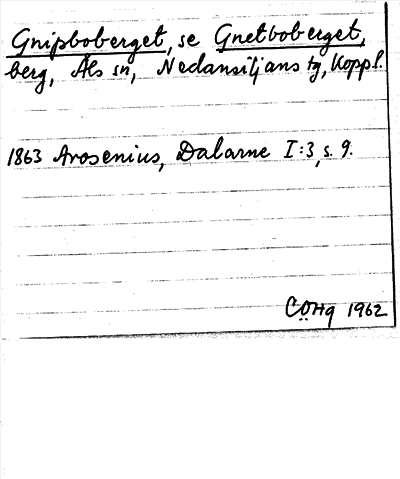 Gnipboberget, se Gnetboberget,
berg, Als sn, Nedansiljans tg, Koppl.
1863 Arosenius, Dalarne I:3, s. 9.
CÖHg 1962